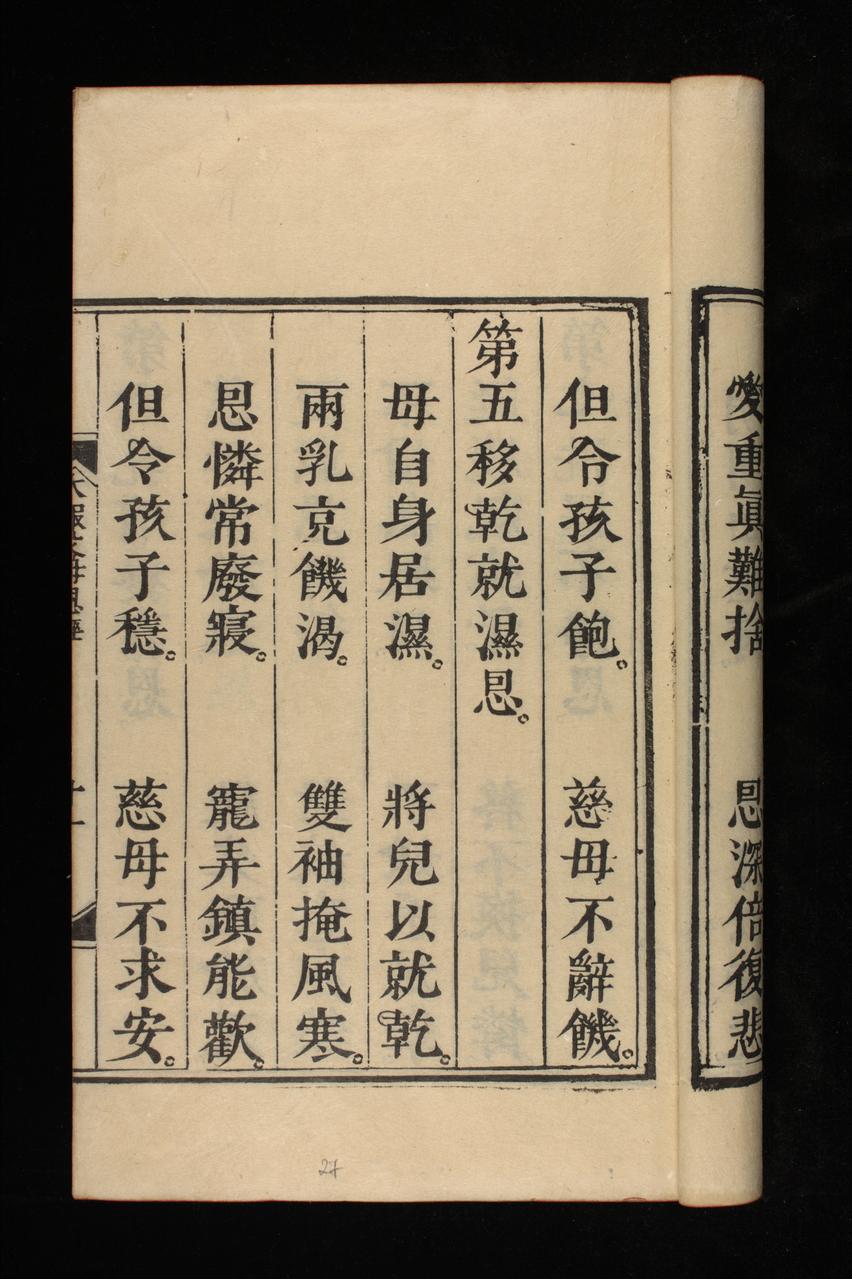 愛重眞難捨　恩深倍復悲
但令孩子飽。慈母不辭饑。
第五移乾就濕恩。
母自身居濕。將兒以就乾。
兩乳充饑渴。雙袖掩風寒。
恩憐常廢寢。寵弄鎮能歡。
但令孩子穩。慈母不求安。
大報父母恩經
27